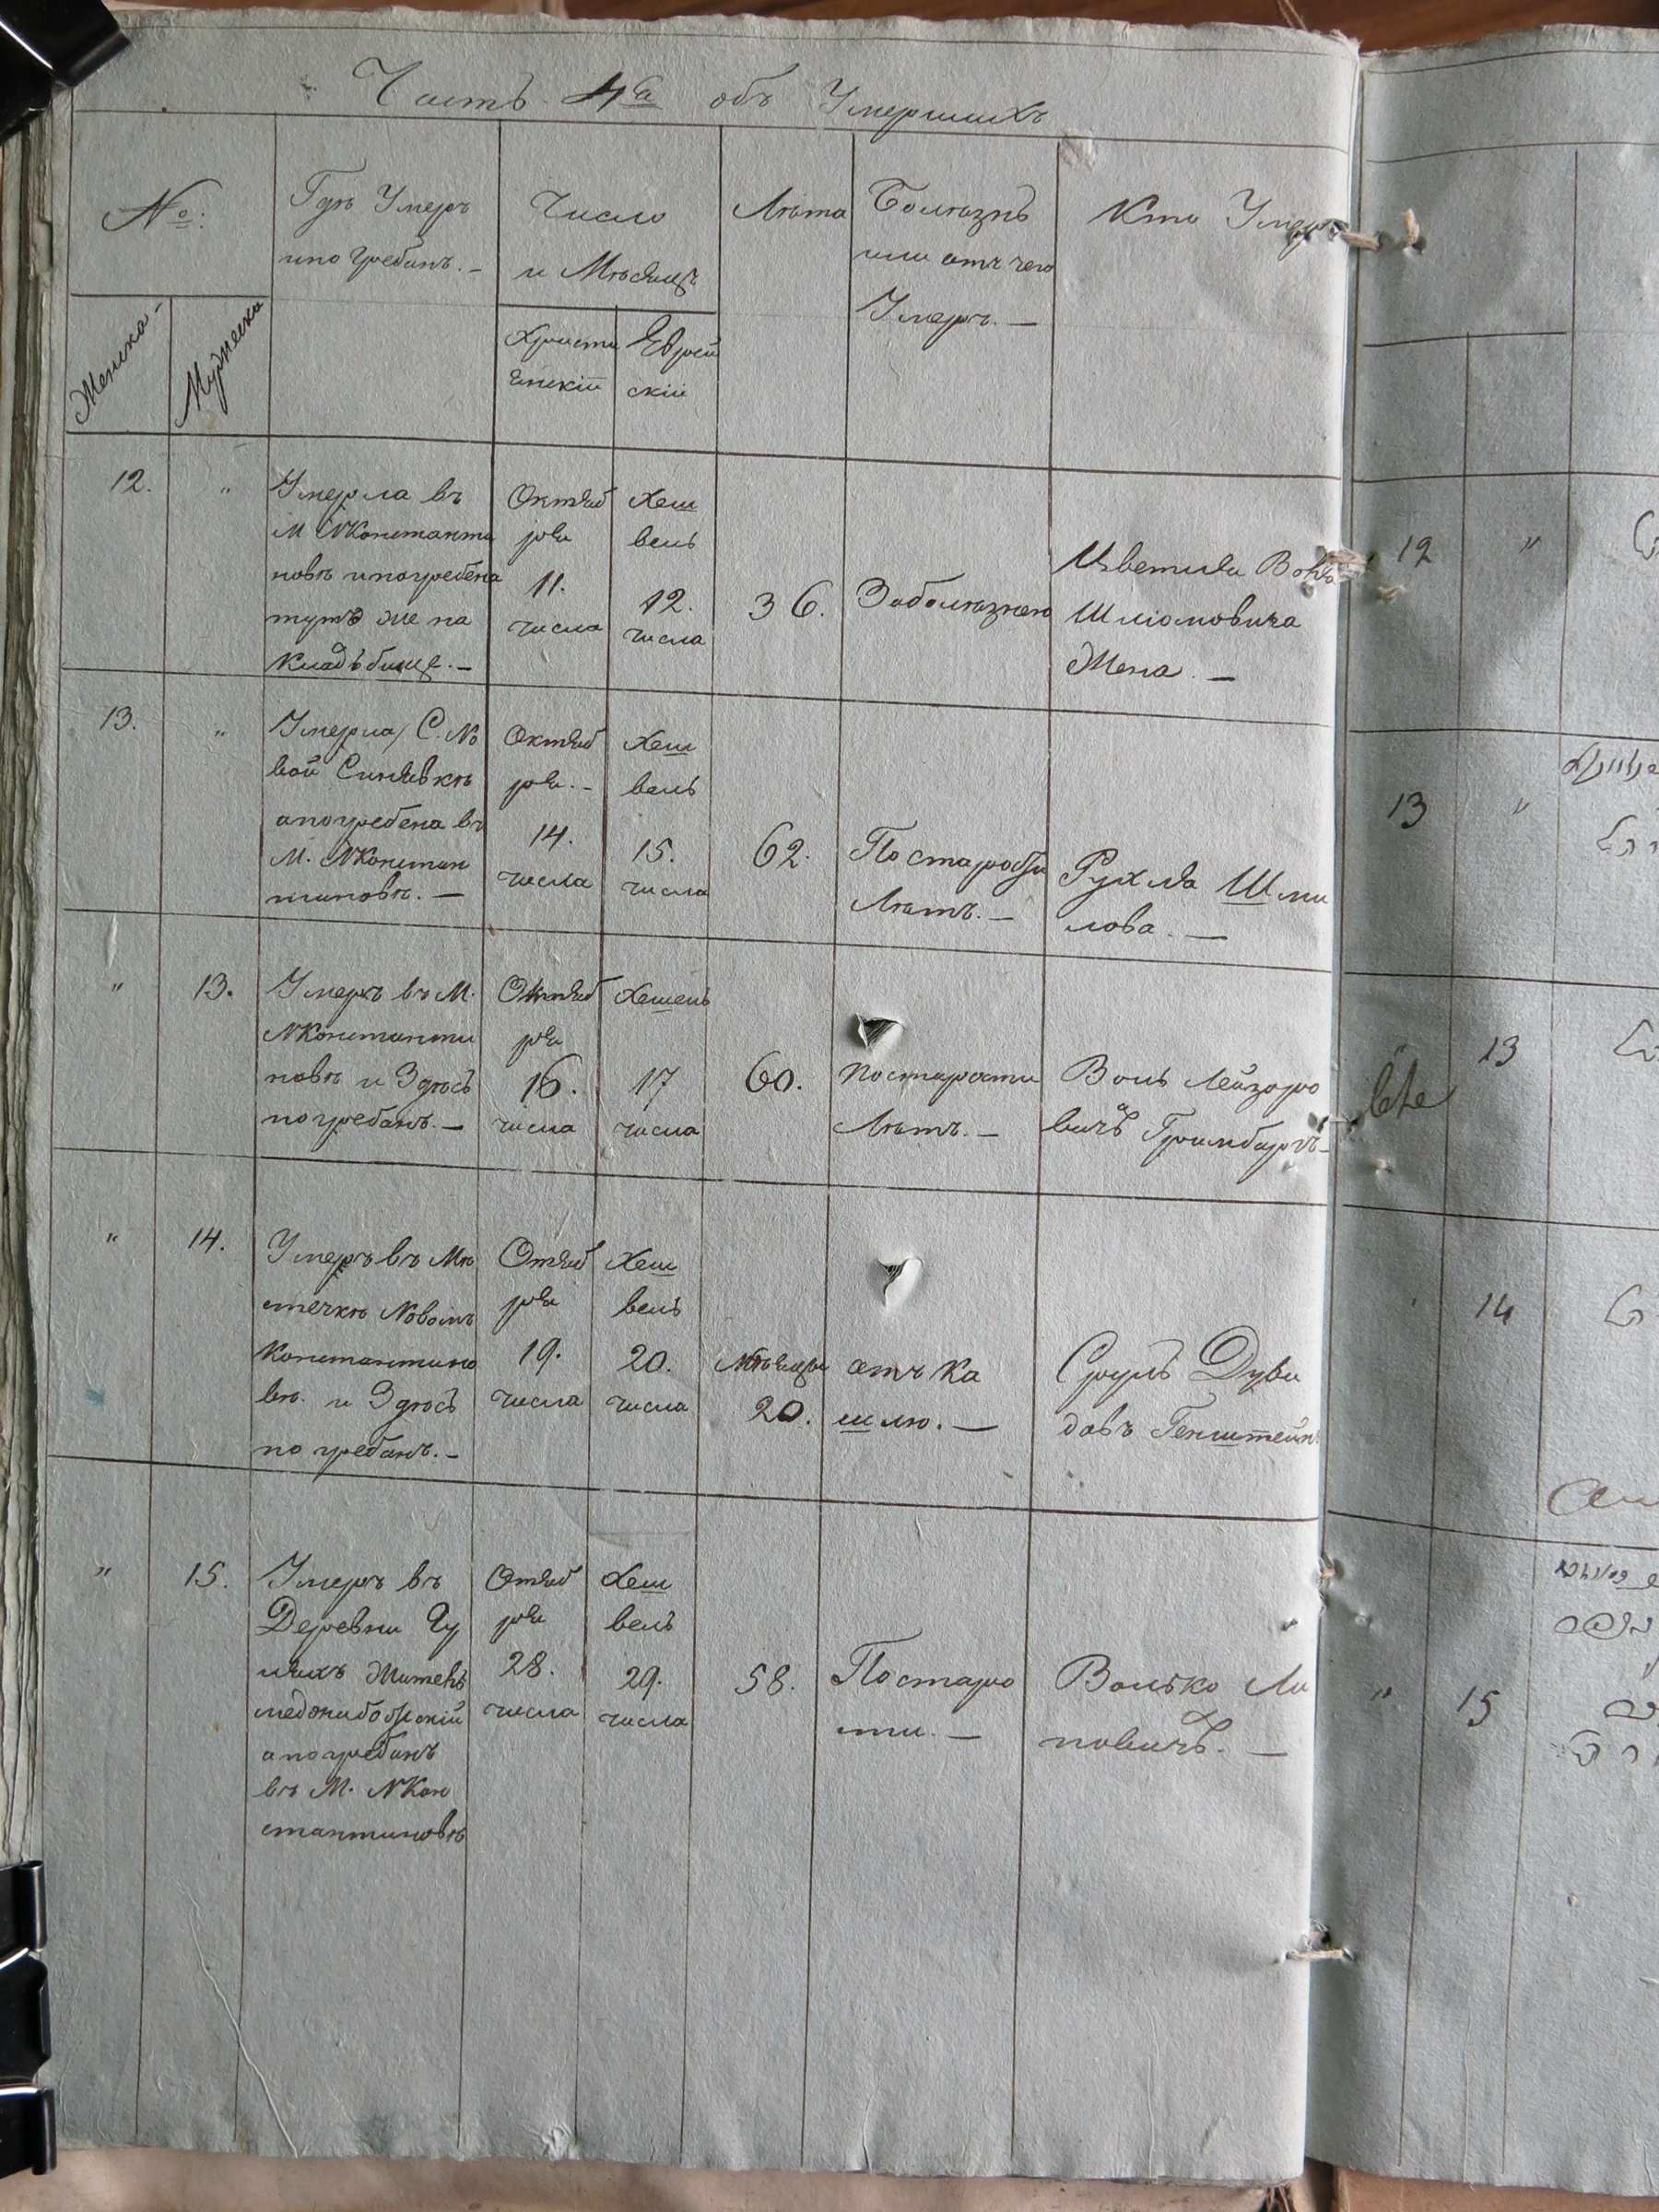 Часть 4я объ Умершихъ
№:
Гдѣ Умеръ
ипо гребанъ. -
Число
и Мѣсяцъ
Лѣта
Болюзнь
или отъ чего
Умеръ. —
Кто Умеръ
Женска -
Мужеска
Христи
янскій
Еврей
скій
12.
"
Умерла въ
М NКонстанти
новѣ ипогребена
тутъ же на
Кладьбище. —
Октяб
ря
11.
числа
Хеш
вень
12.
числа
36.
Заболюзнею
Цветиля Вольъ
Шліомовича
Жена. —
13.
"
Умерла С. Но
вой Синявкѣ
апогребена въ
М. NКонстан
тиновѣ. —
Октяб
ря. -
14.
числа
Хеш
вень
15.
числа
62.
По старости
Лѣтъ. —
Рухля Шми
лова. —
"
13.
Умеръ въ М.
NКонстанти
новѣ и Здѣсь
погребанъ. —
Октяб
ря
16.
числа
Хешень
17
числа
60.
постарости
Лѣтъ. —
Воль Лейзоро
вичъ Гримбаргъ
"
14.
Умеръ въ Мѣ
стечкѣ Новомъ
Константино
вѣ. и Здѣсь
по гребанъ. —
Отяб
ря
19.
числа
Хеш
вень
20.
числа
Мѣсяцы
20.
отъ Ка
шлю. —
Сруль Дуви
довъ Генштейнъ
"
15.
Умеръ въ
Деревни Гу
ляхъ Житель
меджибожскій
апогребанъ
въ М. NКон
стантиновѣ
Отяб
ря
28.
числа
Хеш
вень
29.
числа
58.
Постаро
сти. —
Волько Ли
повичъ. —
12
"
13
"
"
13
14
"
15